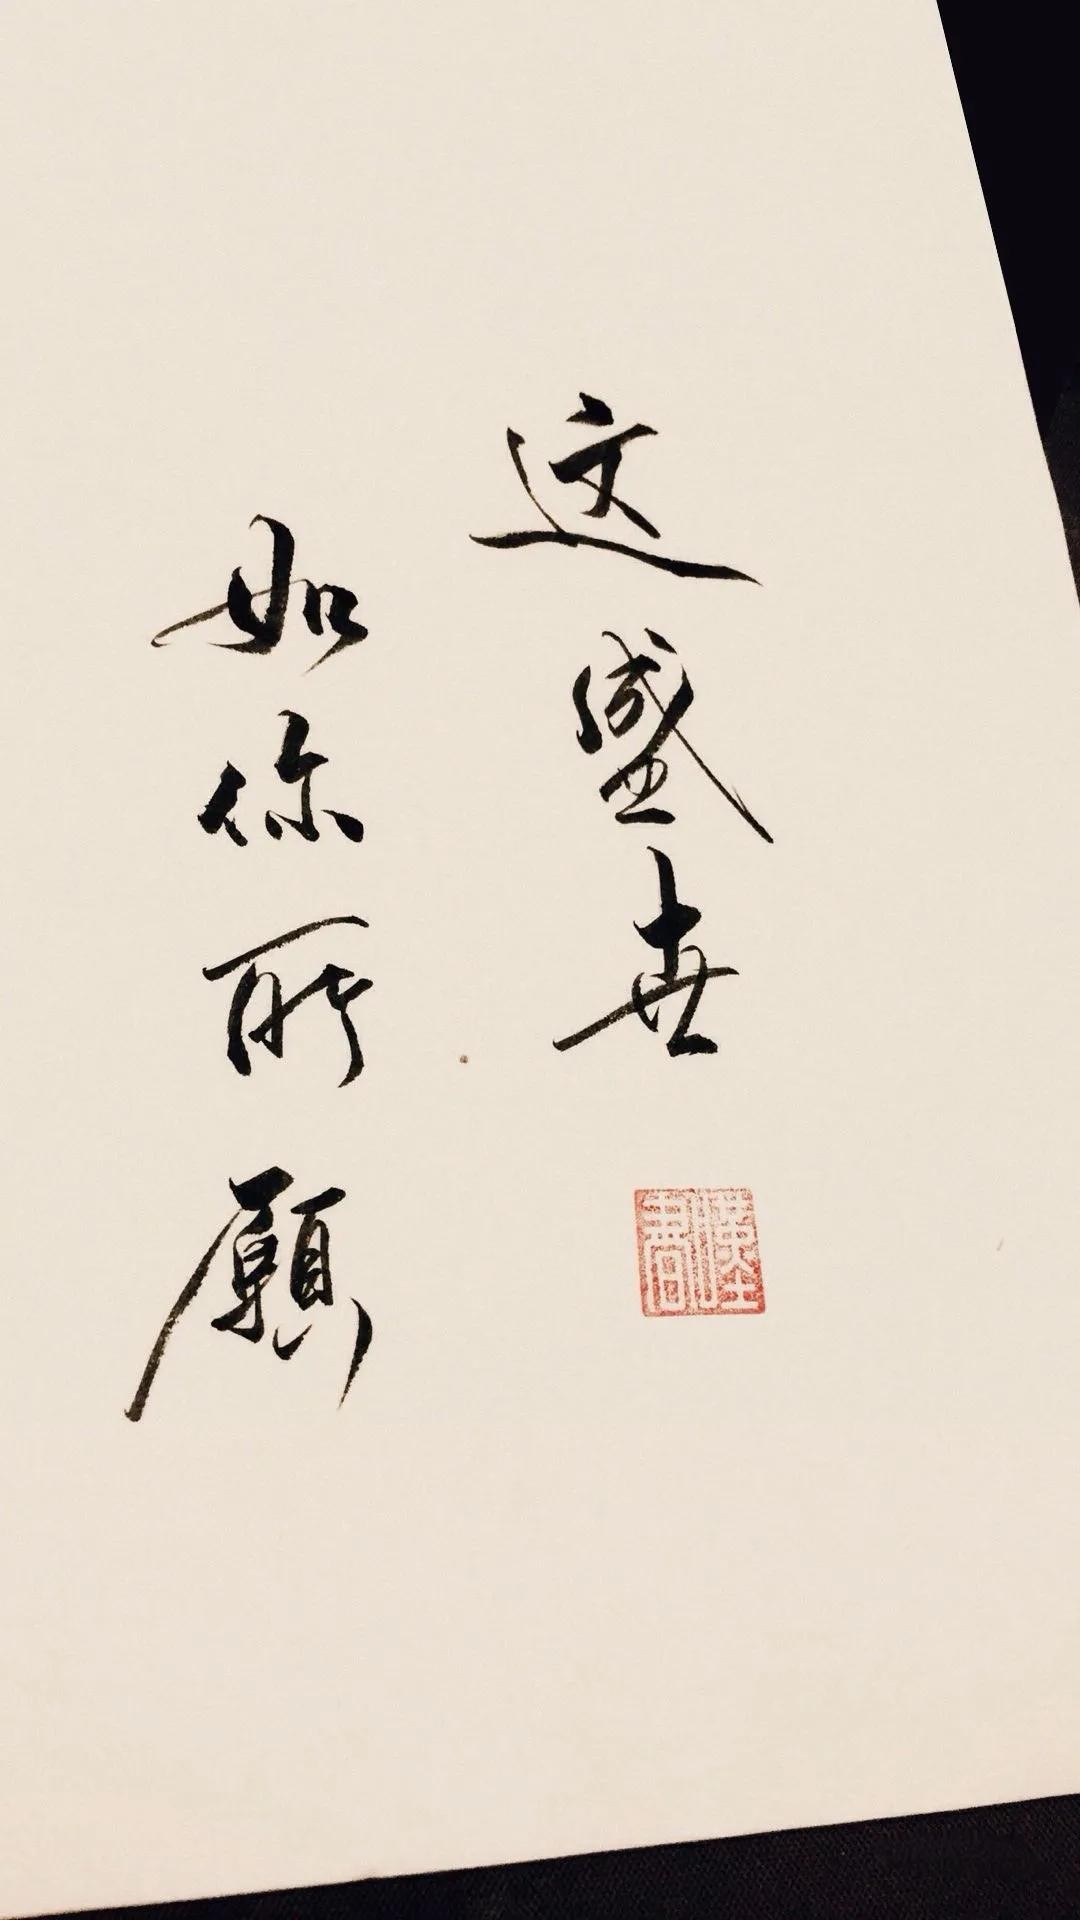 这盛世
如你所願